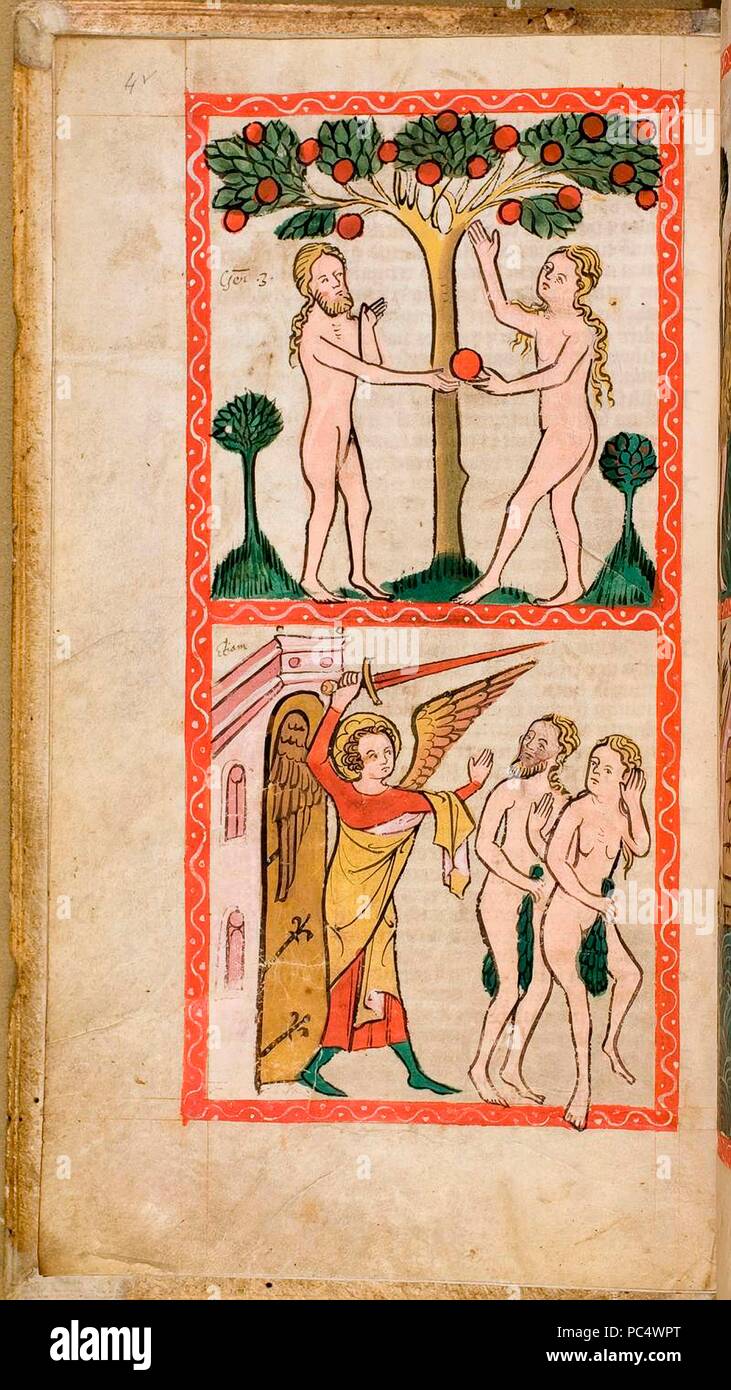 4v
Gen̄ 3.
alamy
Image ID: PC4WPT
www.alamy.com